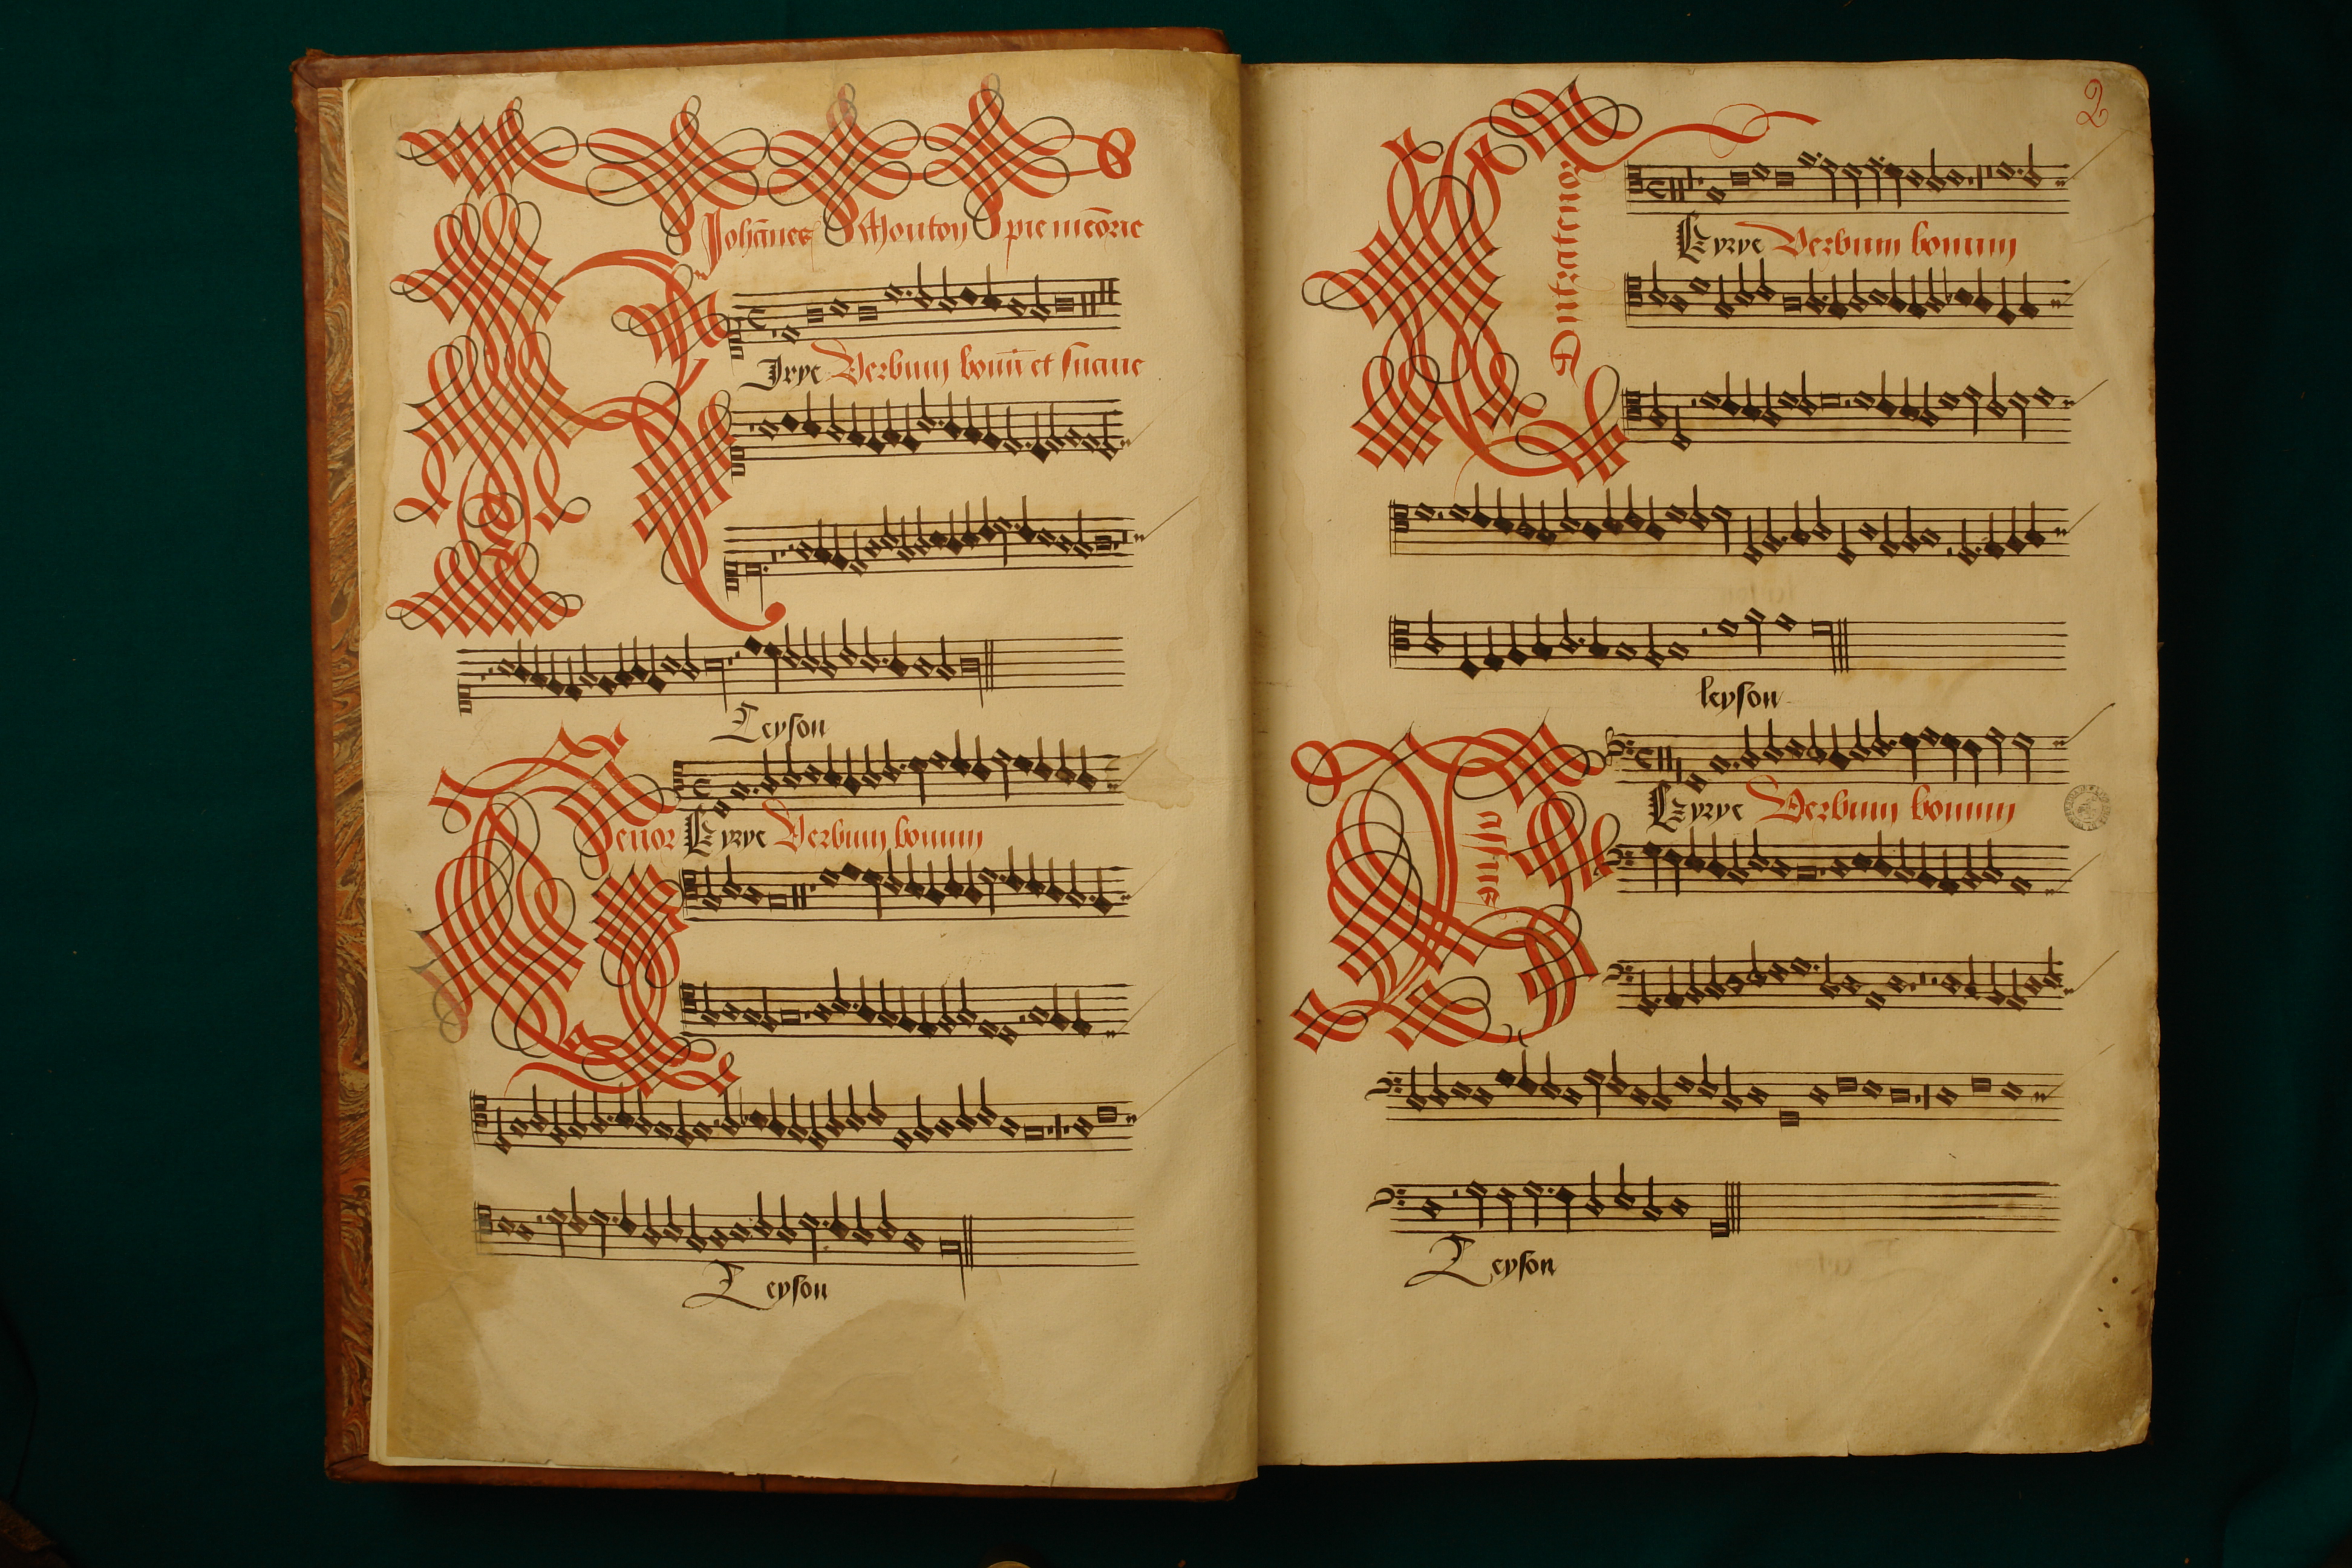 Johānes Mouton pie meōrie
Kirye Verbum bonū et suaue
Leyson
Tenor Kyrye Verbum bonum
Leyson
2
Contratenor
Kyrye Verbum bonum
leyson
Bassus
Kyrye Verbum bonum
Leyson